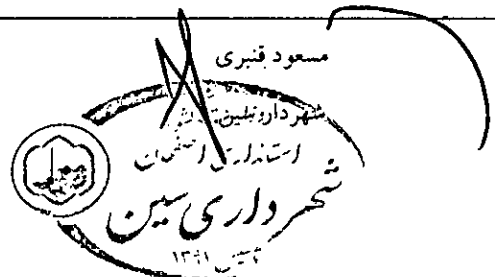 مسعود قنبری
شهردار
استانداری اصفهان
شهرداری سین
تاسیس ۱۳۹۱